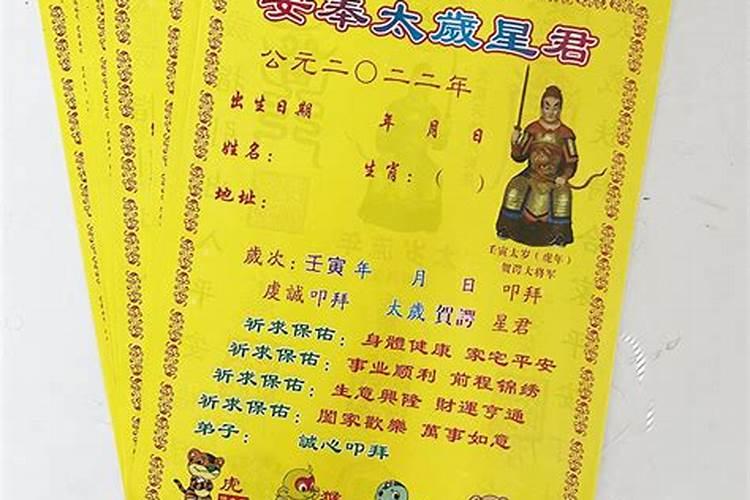 安奉太歲星君
公元二〇二二年
出生日期 年 月 日
姓名： 生肖：（ ）
地址：
壬寅太岁（虎年）
賀諤大將军
歲次：壬寅年 月 日 叩拜
虔誠叩拜 太歲賀諤 星君
祈求保佑：身體健康 家宅平安
祈求保佑：事业顺利 前程锦绣
祈求保佑：生意興隆 財運亨通
祈求保佑：闔家歡樂 萬事如意
弟子： 誠心叩拜
虎 猴